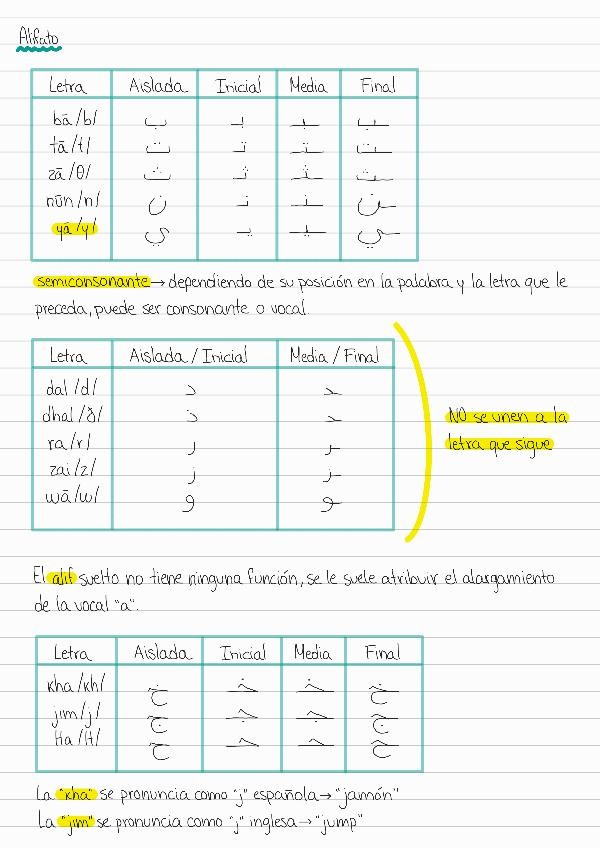 Alifato
Letra Aislada Inicial Media Final
bā /b/ ب بـ ـبـ ـب
tā /t/ ت تـ ـتـ ـت
zā /θ/ ث ثـ ـثـ ـث
nūn /n/ ن نـ ـنـ ـن
yā /y/ ي يـ ـيـ ـي
semiconsonante → dependiendo de su posición en la palabra y la letra que le
preceda, puede ser consonante o vocal.
Letra Aislada / Inicial Media / Final
dal /d/ د ـد
dhal /ð/ ذ ـد
ra /r/ ر ـر
zai /z/ ز ـز
wā /w/ و ـو
NO se unen a la
letra que sigue
El alif suelto no tiene ninguna función, se le suele atribuir el alargamiento
de la vocal "a".
Letra Aislada Inicial Media Final
kha /kh/ خ خـ ـخـ ـخ
jim /j/ ج جـ ـجـ ـج
Ha /H/ ح حـ ـحـ ـح
La "kha" se pronuncia como "j" española → "jamón"
La "jim" se pronuncia como "j" inglesa → "jump"